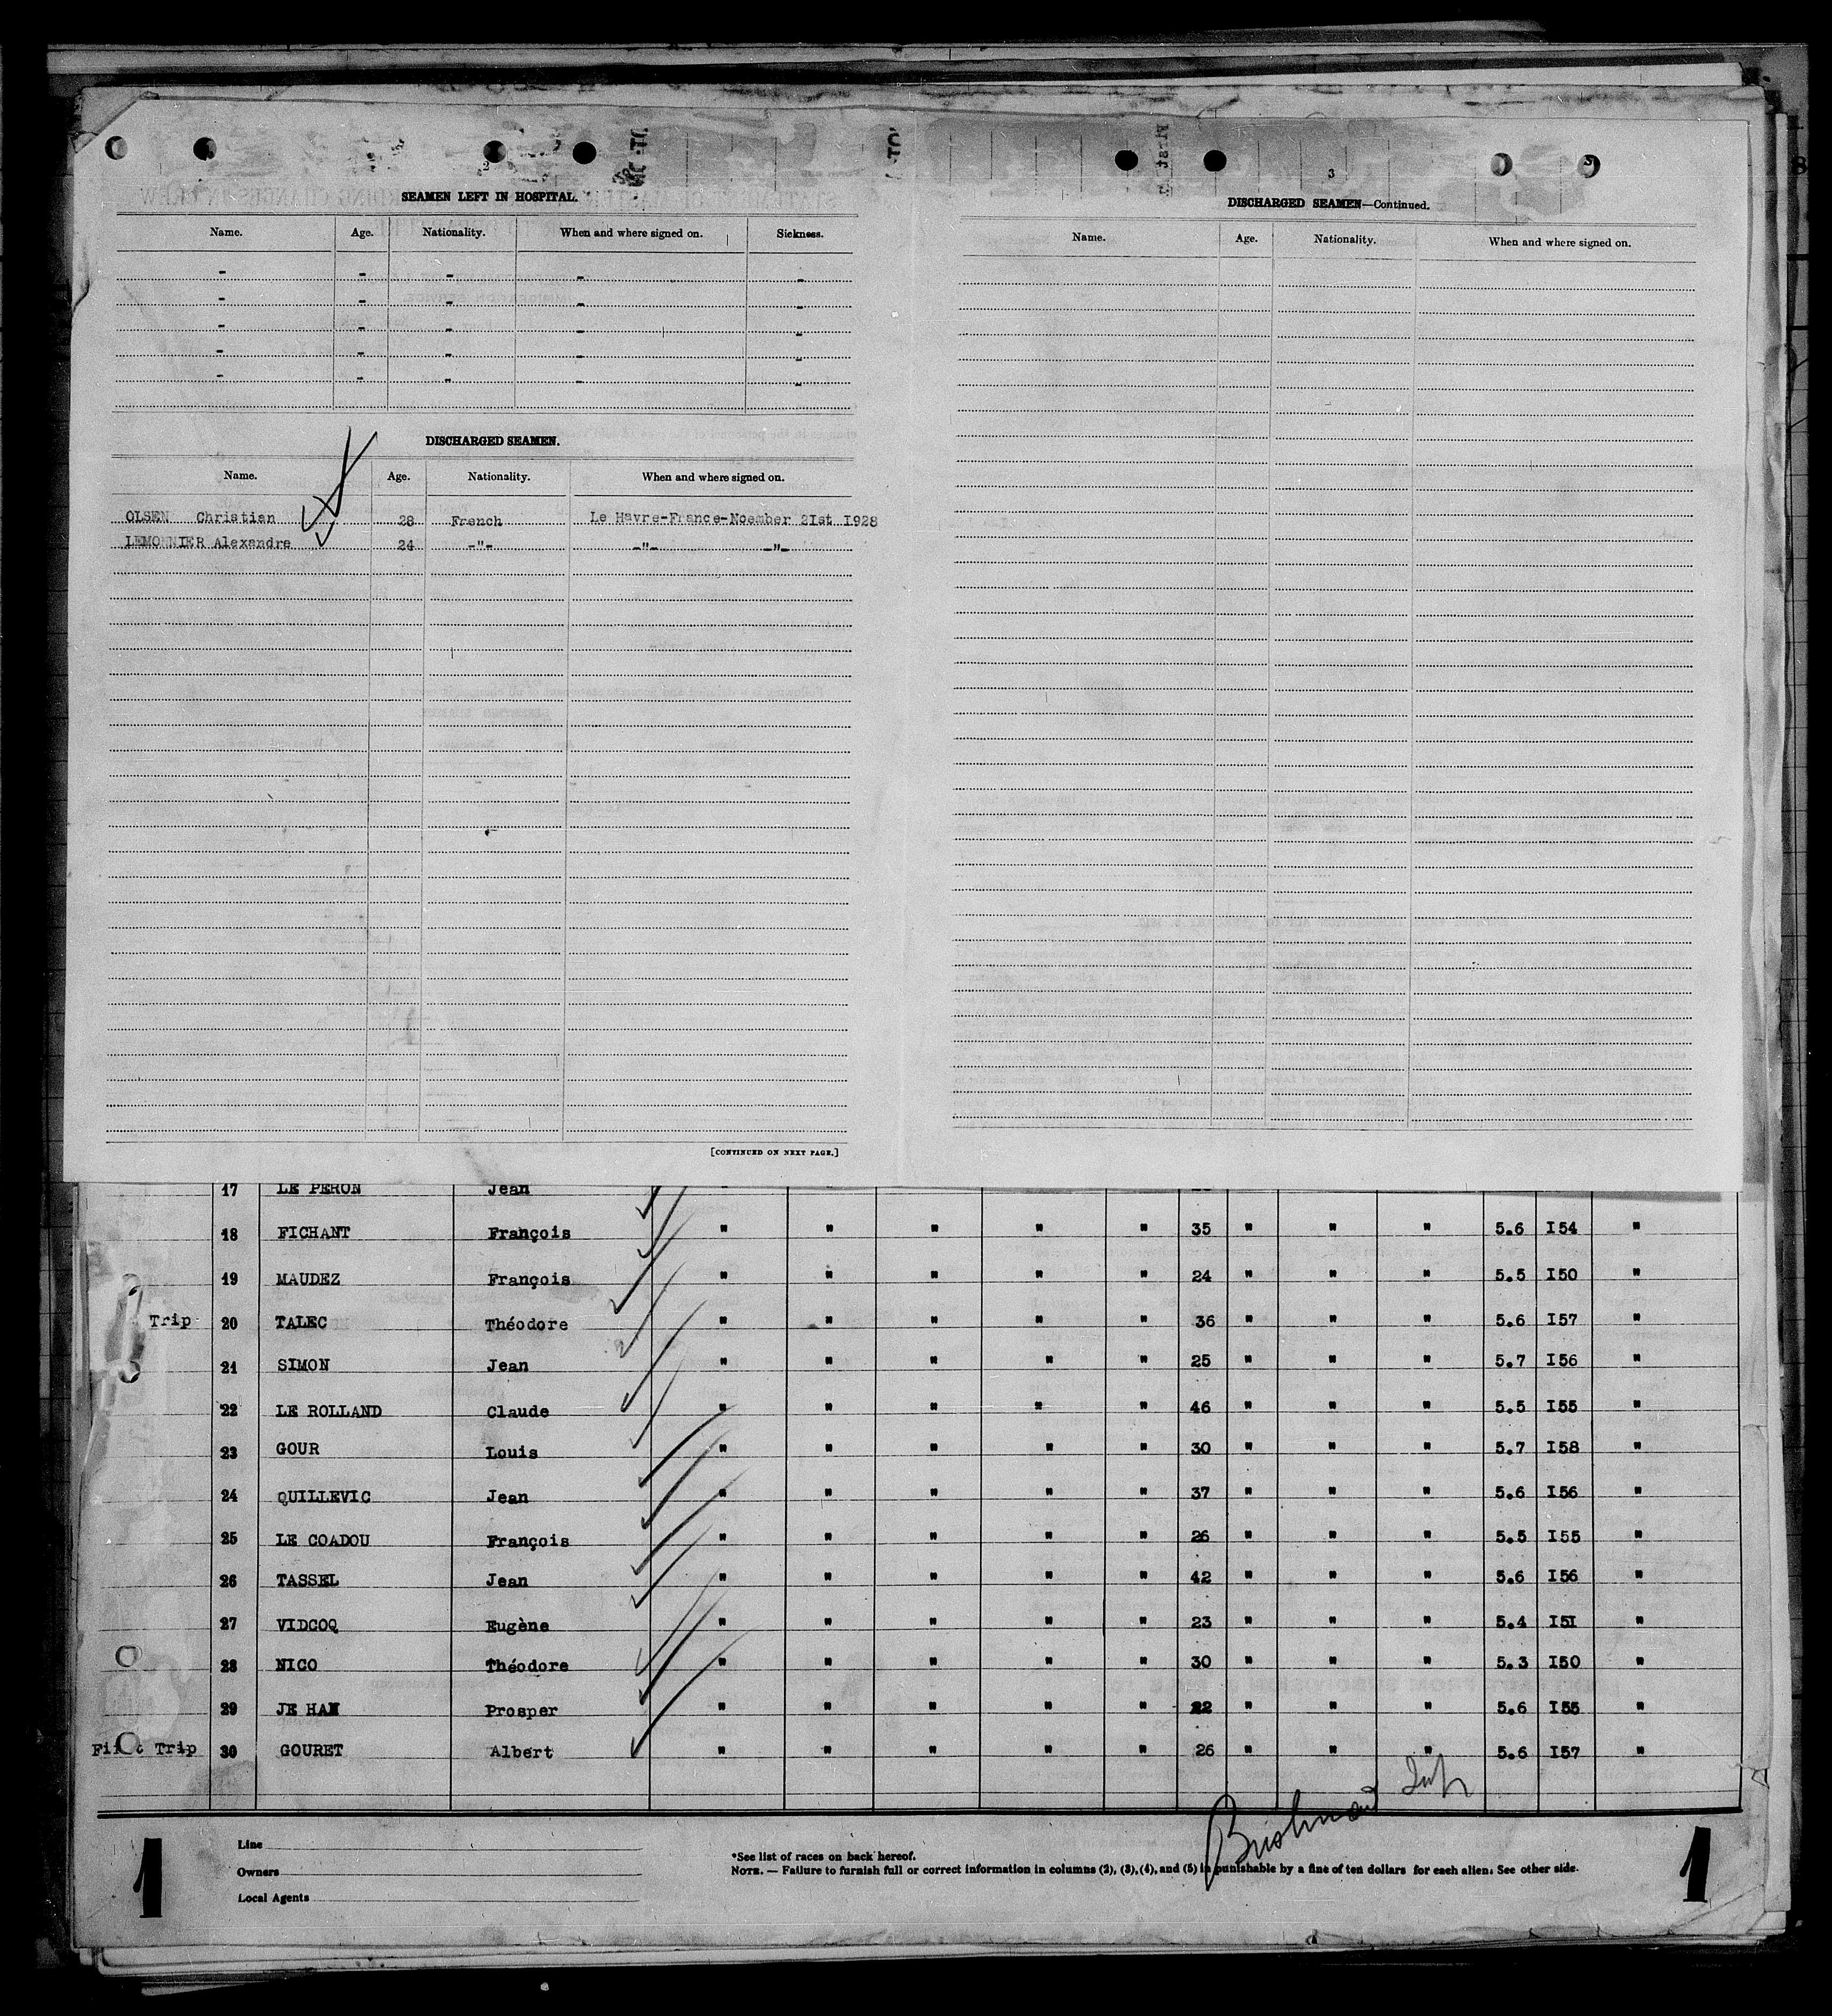 2
SEAMEN LEFT IN HOSPITAL.
Name. Age. Nationality. When and where signed on. Sickness.
- - - - -
- - - - -
- - - - -
- - - - -
- - - - -
DISCHARGED SEAMEN.
Name. Age. Nationality. When and where signed on.
OLSEN Christian 28 French Le Havre-France-Noember 2Ist I928
LEMONNIER Alexandre 24 -"- -"- -"-
[CONTINUED ON NEXT PAGE.]
3
DISCHARGED SEAMEN—Continued.
Name. Age. Nationality. When and where signed on.
17 LE PERON Jean
18 FICHANT François " " " " " 35 " " " 5.6 I54 "
19 MAUDEZ François " " " " " 24 " " " 5.5 I50 "
Trip 20 TALEC Théodore " " " " " 36 " " " 5.6 I57 "
21 SIMON Jean " " " " " 25 " " " 5.7 I56 "
22 LE ROLLAND Claude " " " " " 46 " " " 5.5 I55 "
23 GOUR Louis " " " " " 30 " " " 5.7 I58 "
24 QUILLEVIC Jean " " " " " 37 " " " 5.6 I56 "
25 LE COADOU François " " " " " 26 " " " 5.5 I55 "
26 TASSEL Jean " " " " " 42 " " " 5.6 I56 "
27 VIDCOQ Eugène " " " " " 23 " " " 5.4 I5I "
28 NICO Théodore " " " " " 30 " " " 5.3 I50 "
29 JE HAN Prosper " " " " " 22 " " " 5.6 I55 "
Trip 30 GOURET Albert " " " " " 26 " " " 5.6 I57 "
1
Line
Owners
Local Agents
*See list of races on back hereof.
NOTE. — Failure to furnish full or correct information in columns (2), (3), (4), and (5) is punishable by a fine of ten dollars for each alien. See other side.
1